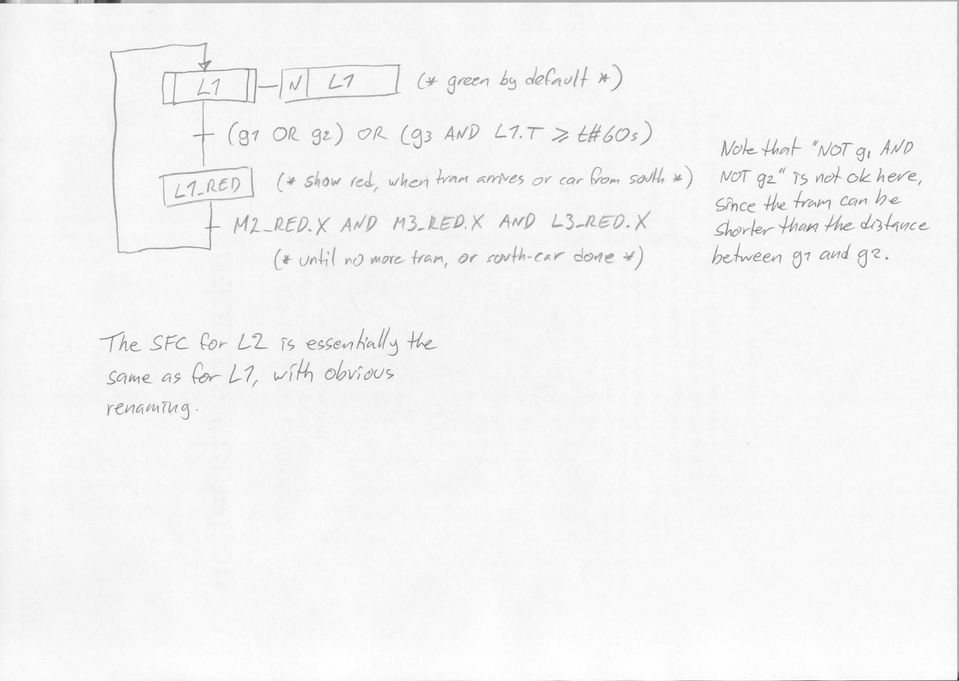 L1 N L1 (* green by default *)
(g1 OR g2) OR (g3 AND L1.T ≥ t#60s)
L1_RED (* show red, when tram arrives or car from south *)
M2_RED.X AND M3_RED.X AND L3_RED.X
(* until no more tram, or south-car done *)
Note that "NOT g1 AND
NOT g2" is not ok here,
since the tram can be
shorter than the distance
between g1 and g2.
The SFC for L2 is essentially the
same as for L1, with obvious
renaming.